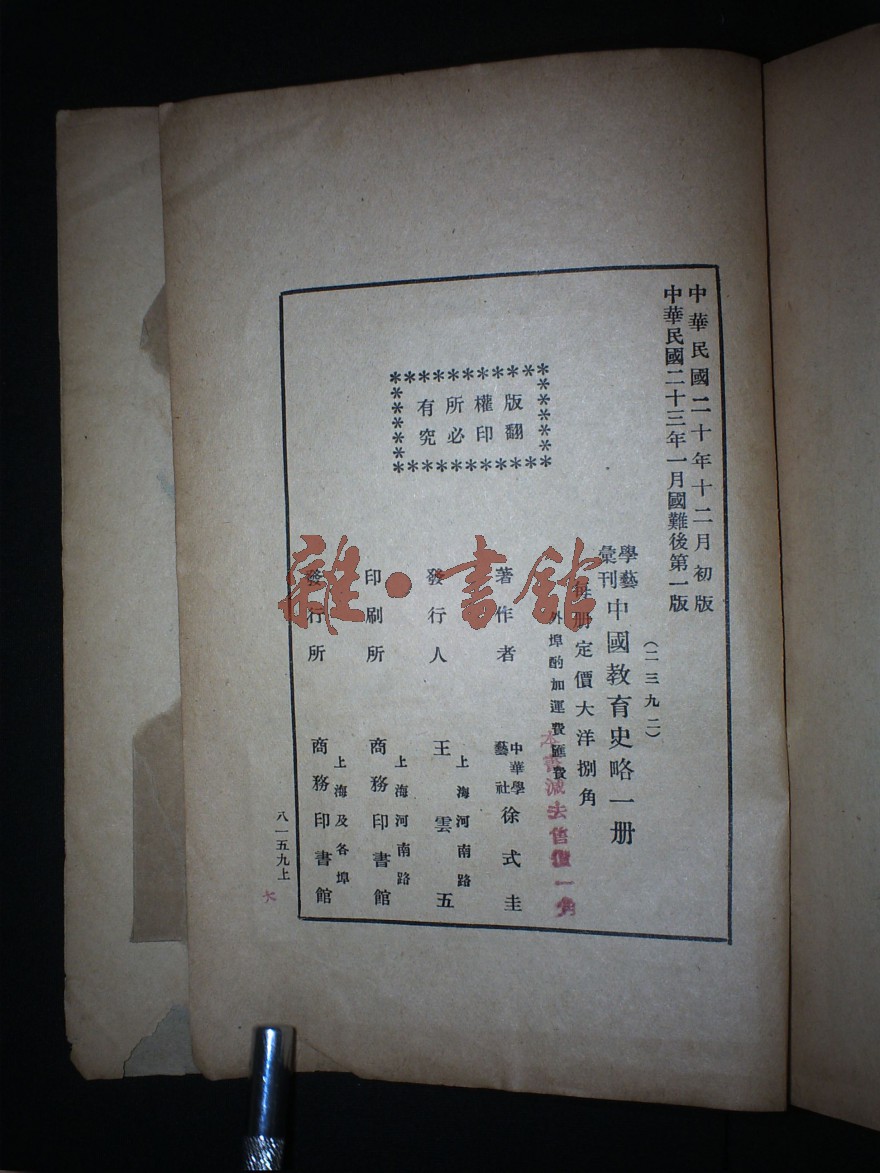 中華民國二十年十二月初版
中華民國二十三年一月國難後第一版
(二三九二)
學藝彙刊 中國教育史略一册
每册定價大洋捌角
外埠酌加運費匯費
本書減去售價一角
版權所有
翻印必究
著作者 中華學藝社 徐式圭
發行人 上海河南路 王雲五
印刷所 上海河南路 商務印書館
發行所 上海及各埠 商務印書館
八一五九上
雜·書館